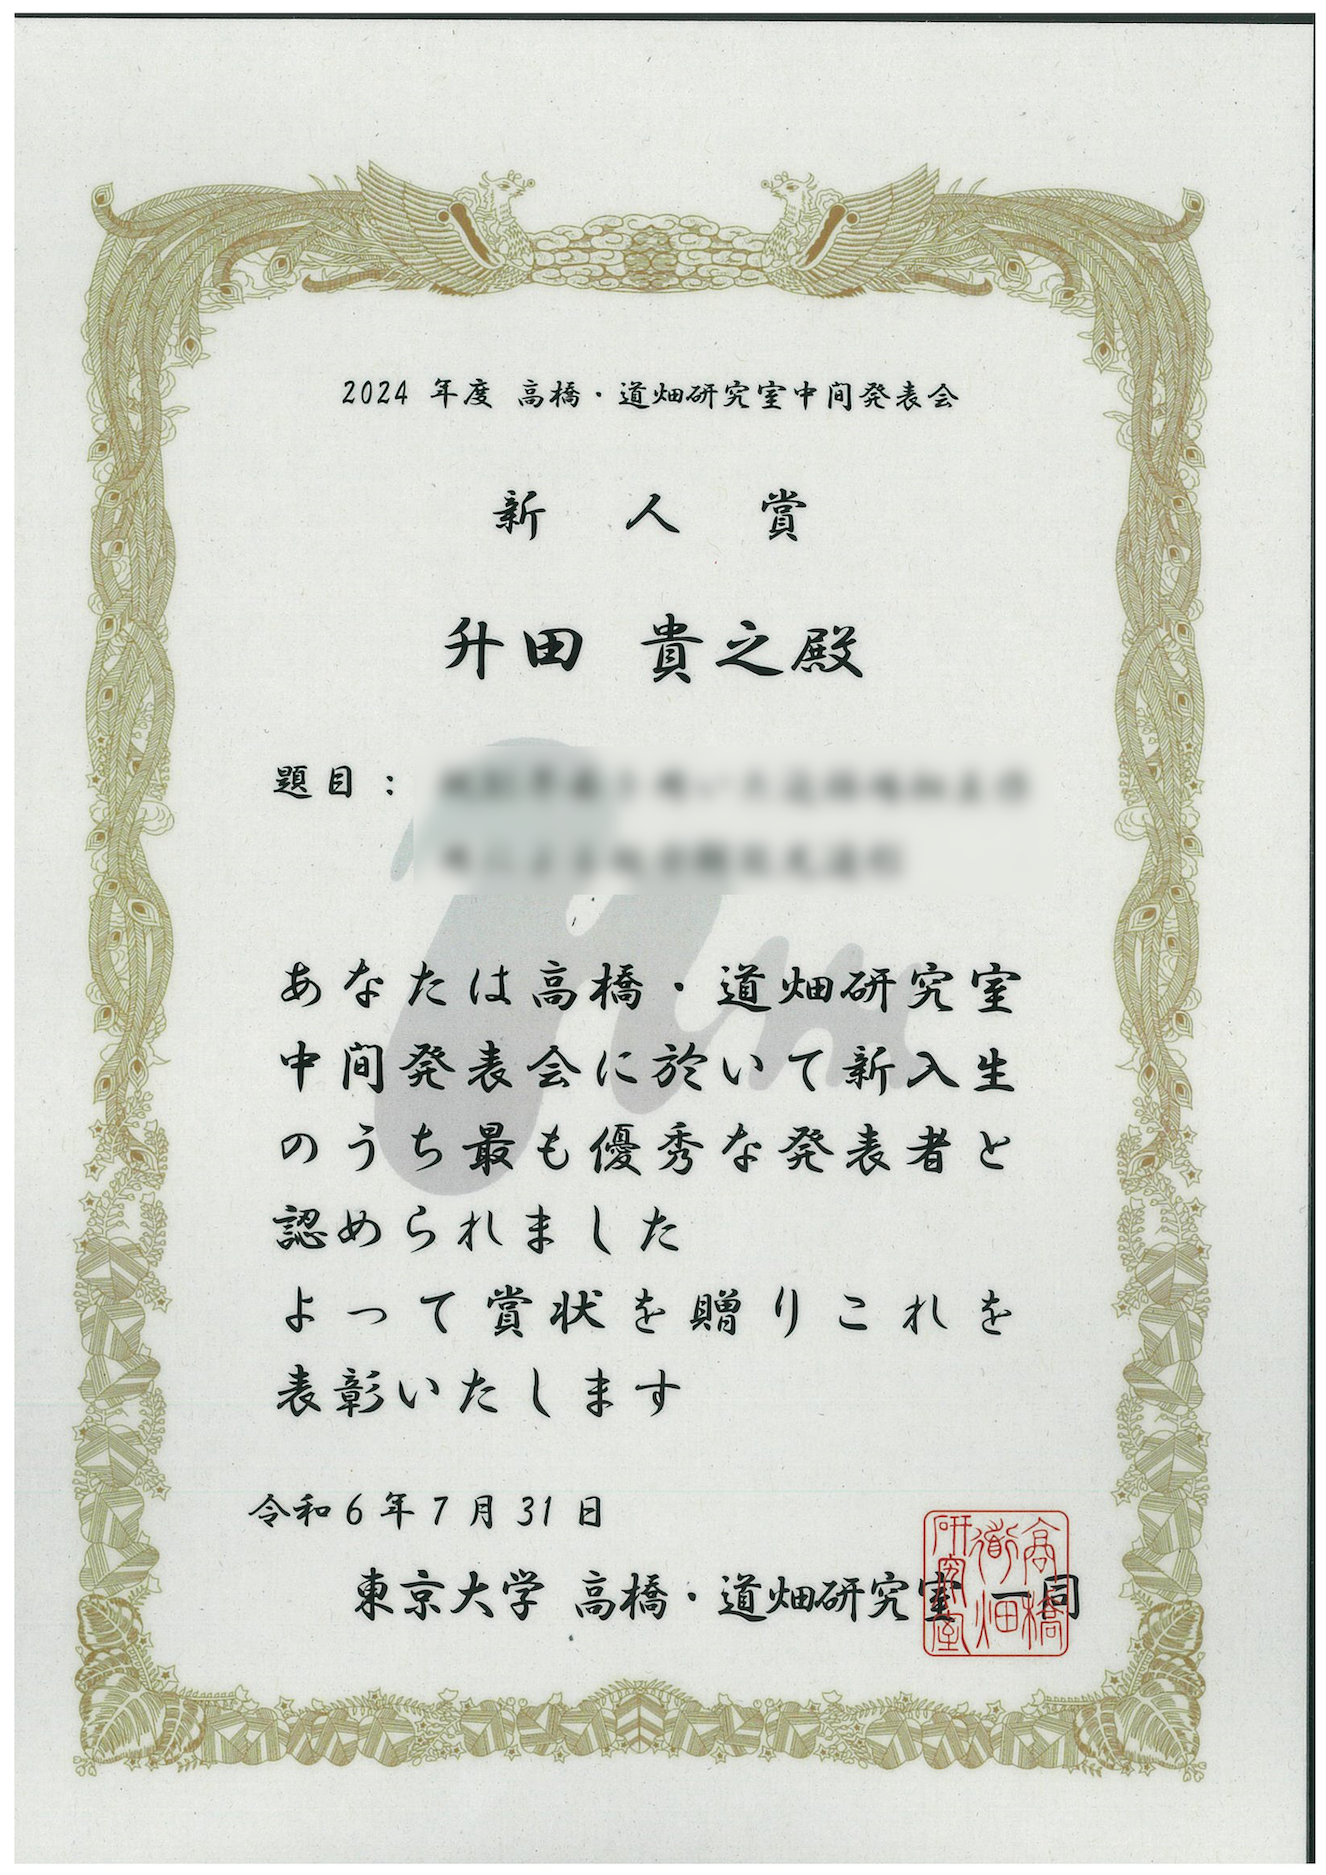 2024 年度 高橋・道畑研究室中間発表会
新人賞
升田 貴之殿
題目：
あなたは高橋・道畑研究室
中間発表会に於いて新入生
のうち最も優秀な発表者と
認められました
よって賞状を贈りこれを
表彰いたします
令和6年7月31日
東京大学 高橋・道畑研究室 一同
高橋
道畑
研究室